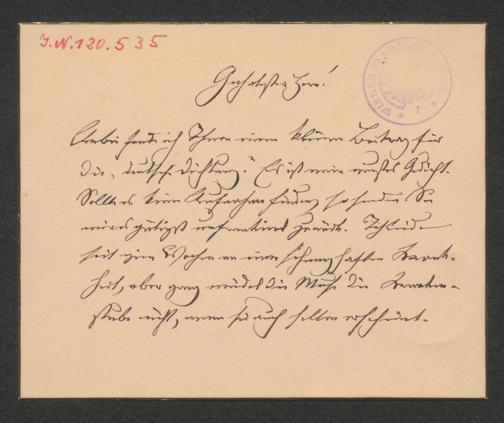 J.N.120.535
Geehrtester Herr!
Anbei sende ich Ihnen einen kleinen Beitrag für
die „deutsche Dichtung." Es ist mein erstes Gedicht.
Sollte es keine Aufnahme finden, so senden Sie
mir es gütigst unfrankirt zurück. Ich leide
seit einer Woche an einer schmerzhaften Krank-
heit, aber ganz meidet die Muse die Kranken-
stube nicht, wenn sie auch selten erscheint.
WIENER